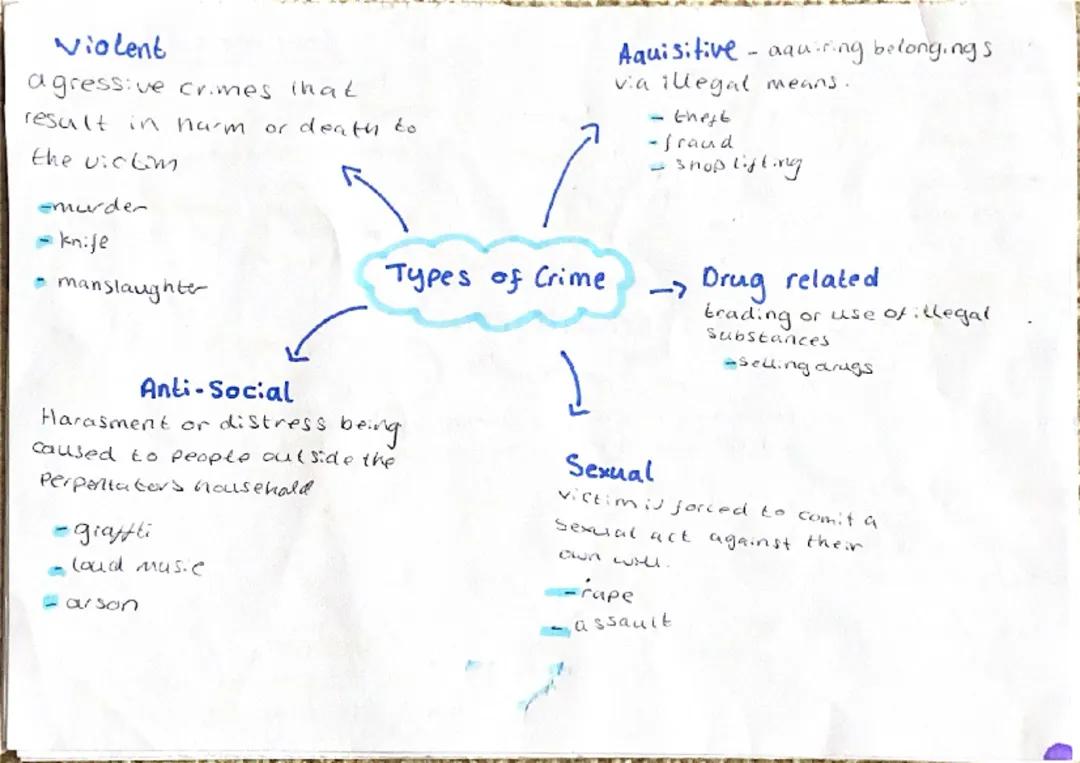 Violent
agressive crimes that
result in harm or death to
the victim
- murder
- knife
- manslaughter
Aquisitive - aquiring belongings
via illegal means.
- theft
- fraud
- shoplifting
Types of Crime
Drug related
trading or use of illegal
substances
- selling drugs
Anti-Social
Harasment or distress being
caused to people outside the
perpertators household
- graffti
- loud music
- arson
Sexual
victim is forced to comit a
sexual act against their
own will.
- rape
- assault